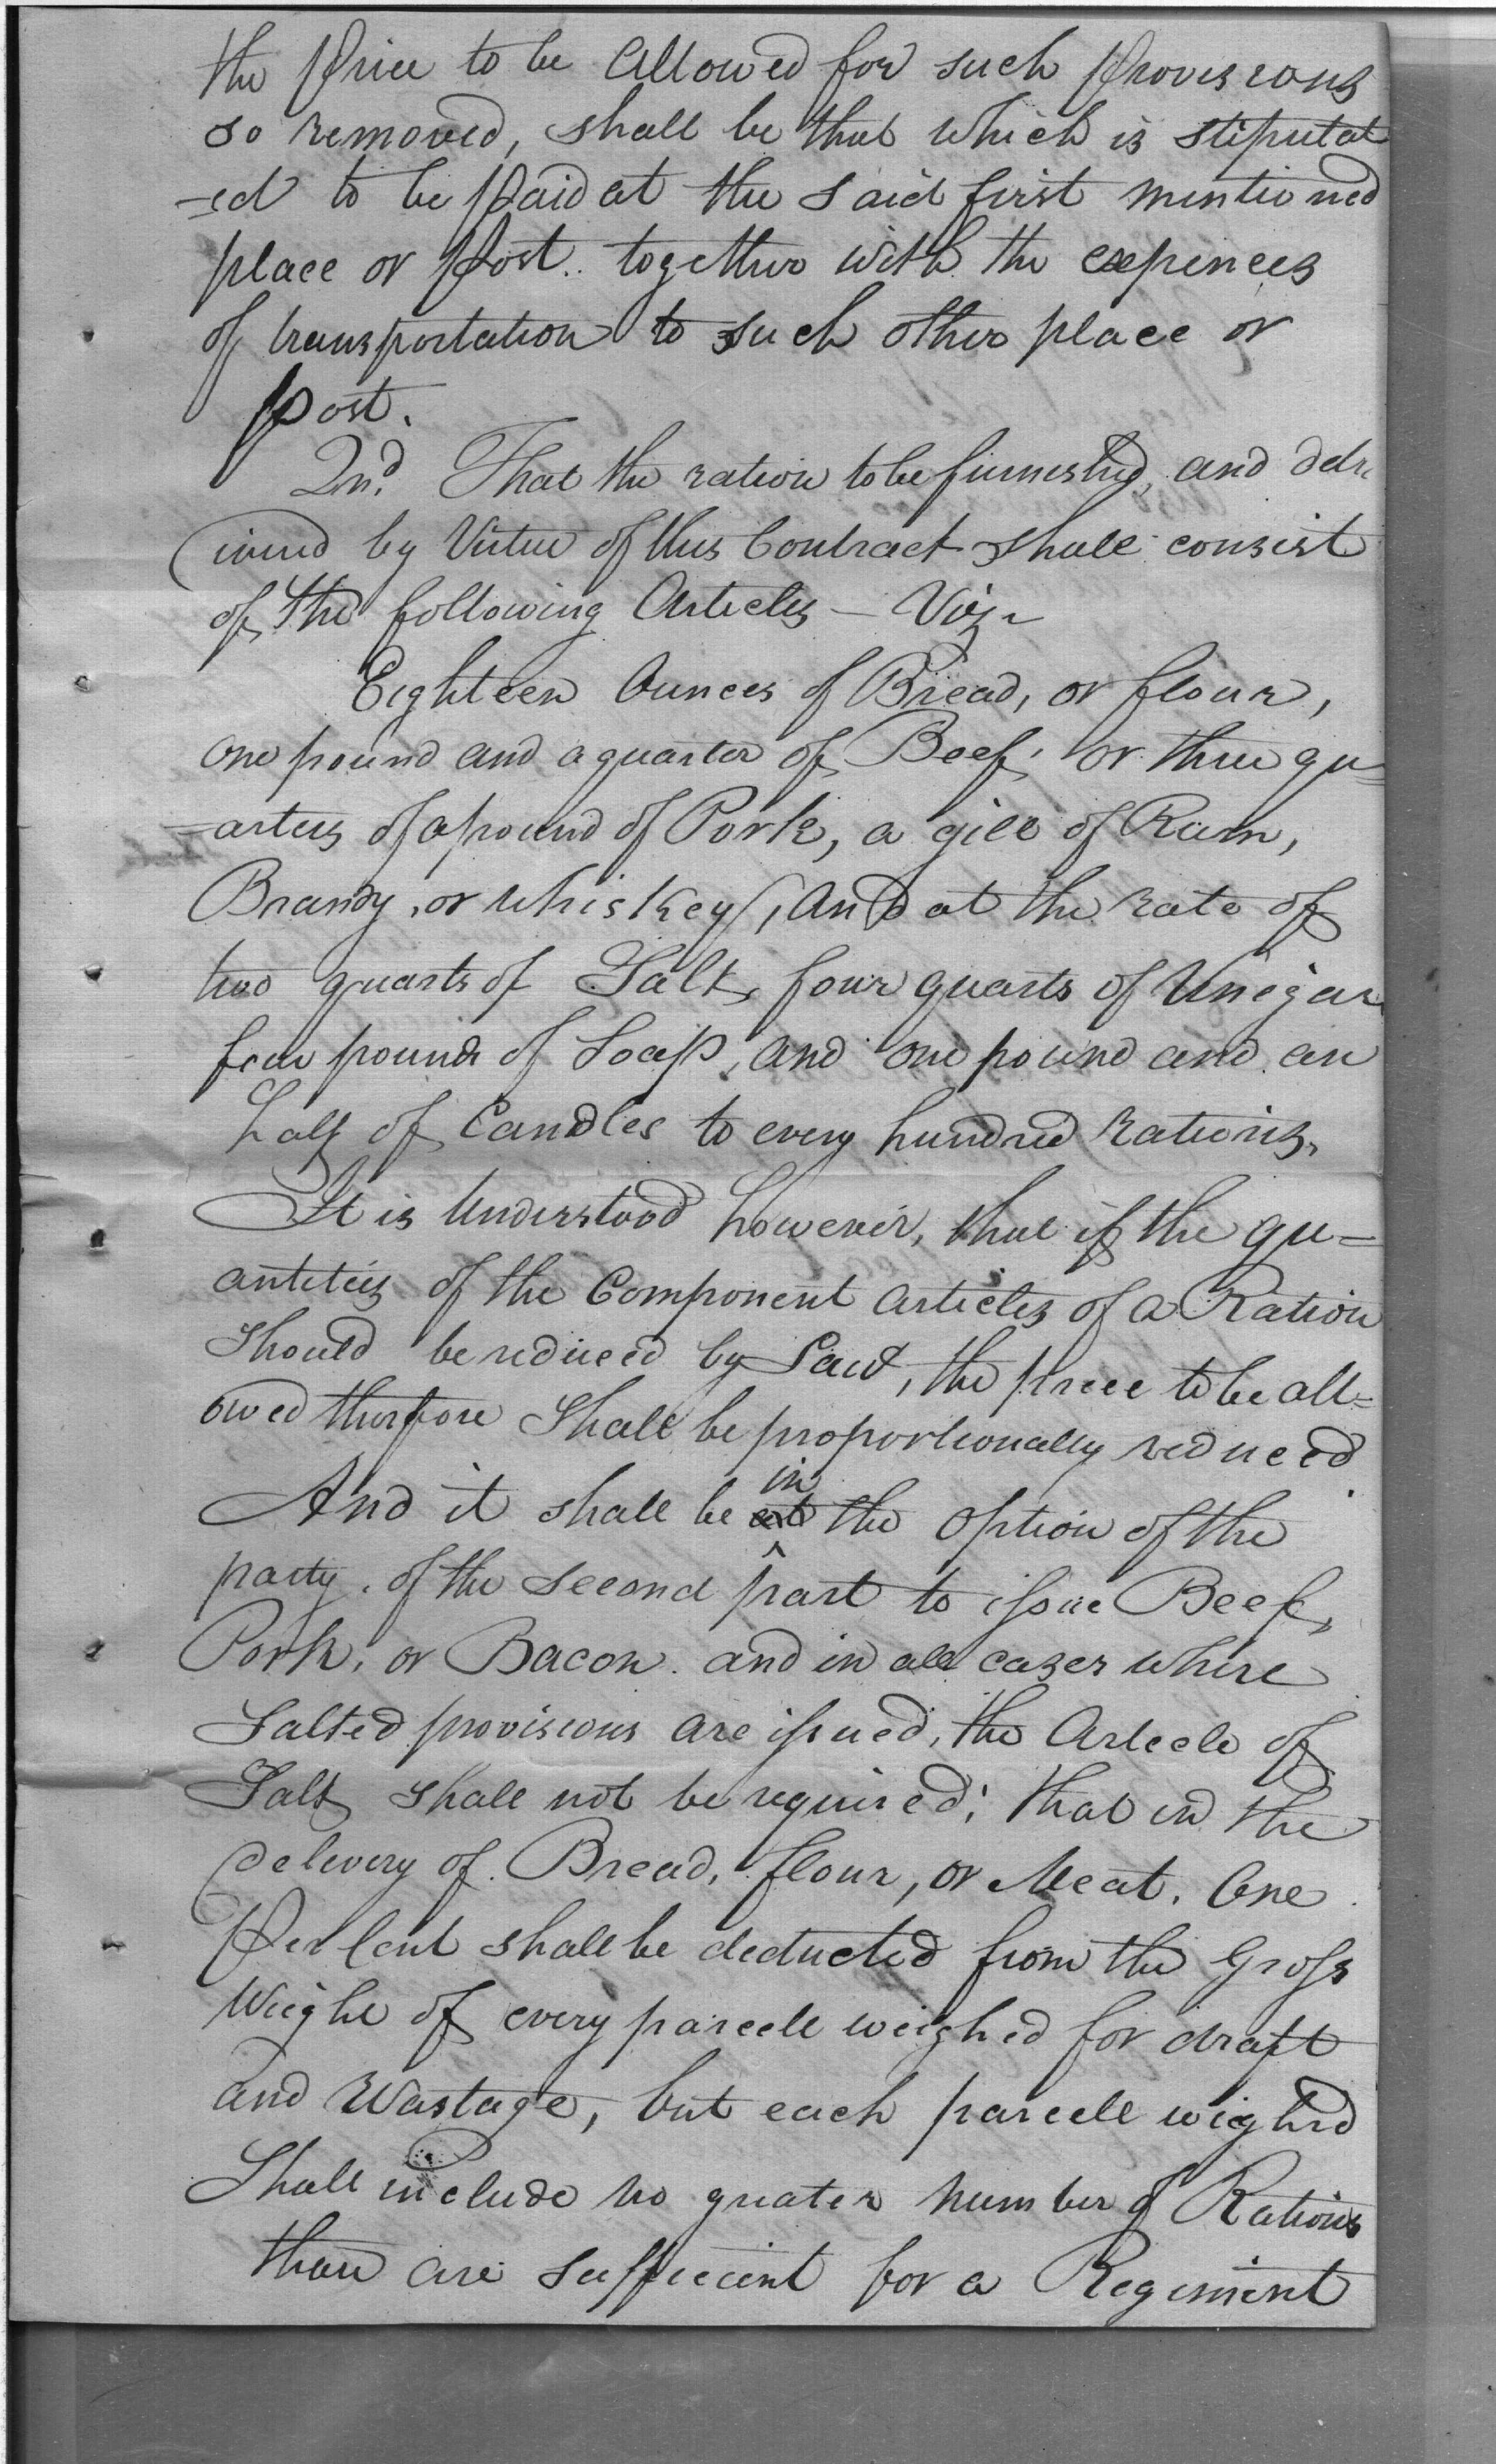 the price to be allowed for such provisions
so removed, shall be that which is stipulat
-ed to be paid at the said first mentioned
place or post.. together with the expences
of transportation to such other place or
post.
2nd. That the ration to be furnished, and del
ivered by Virtue of this Contract shall consist
of the following Articles – Viz.
Eighteen Ounces of Bread, or flour,
one pound and a quarter of Beef, or three qu=
=arters of a pound of Pork, a gill of Rum,
Brandy, or whiskey, and at the rate of
two quarts of Salt, four quarts of Vinegar
four pounds of Soap, and one pound and an
half of Candles to every hundred Rations,
It is Understood however, that if the qu=
antities of the Component articles of a Ration
Should be reduced by Law, the price to be all=
owed therefore Shall be proportionally reduced.
And it shall be at in the option of the
party. of the second part to issue Beef,
Pork, or Bacon. and in all cases where
Salted provisions are issued, the Article of
Salt shall not be required; that in the
delivery of Bread, flour, or Meat. One
Per Cent shall be deducted from the Gross
Weight of every parcell weighed for draft
and Wastage, but each parcell wighed
Shall include no greater number of Rations
than are sufficient for a Regiment